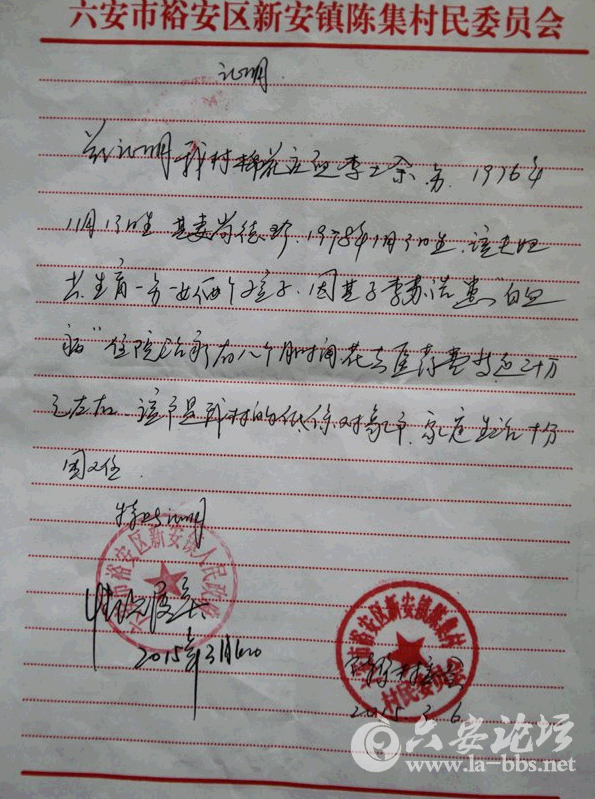 六安市裕安区新安镇陈集村民委员会
证明
兹证明我村棉花庄组李二余,男,1976年
11月13日生 其妻尚德珍,1978年1月30日生,该夫妇
共生育一男一女俩个孩子,因其子李苏浩患"白血
病"住院治疗有八个月时间花去医药费将近三十万
元左右,该户是我村的低保对象户,家庭生活十分
困难.
特此证明
六安市裕安区新安镇人民政府
情况属实
2015年3月6日
六安市裕安区新安镇陈集村
村民委员会
2015.3.6
六安论坛
www.la-bbs.net